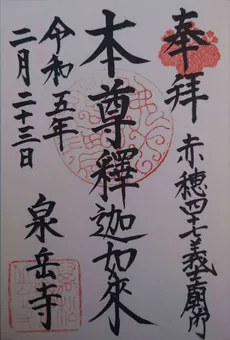 奉拝
赤穂四十七義士廟所
本尊釋迦如來
令和五年
二月二十三日
泉岳寺